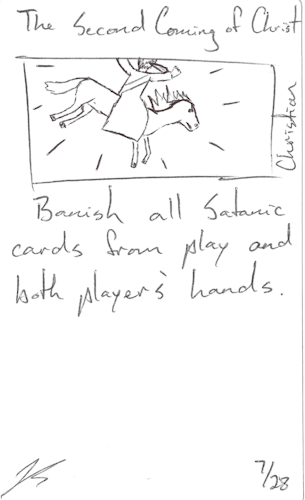 The Second Coming of Christ
Christian
Banish all Satanic
cards from play and
both player's hands.
7/28